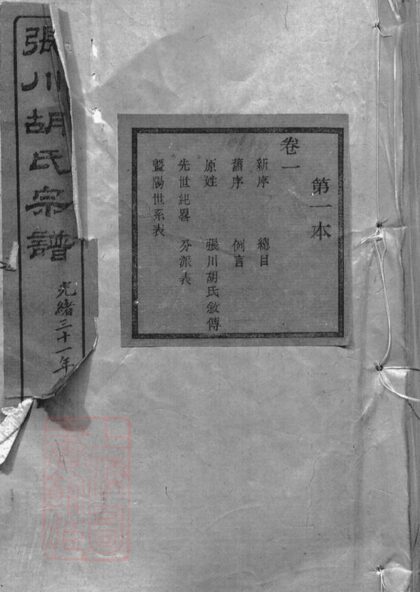 張川胡氏宗譜
光緒三十一年
第一本
卷一
新序 總目
舊序 例言
原姓 張川胡氏敘傳
先世紀畧 分派表
暨陽世系表